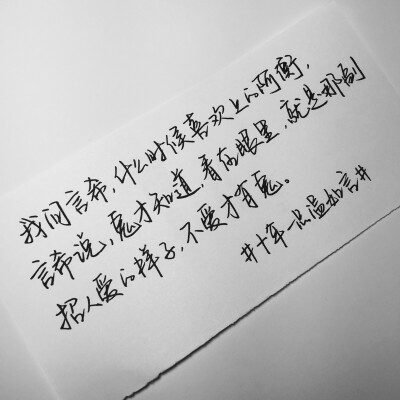 我问言希,什么时候喜欢上的阿衡,
言希说,鬼才知道,看在眼里,就是那副
招人爱的样子,不爱才有鬼。
#十年一品温如言#